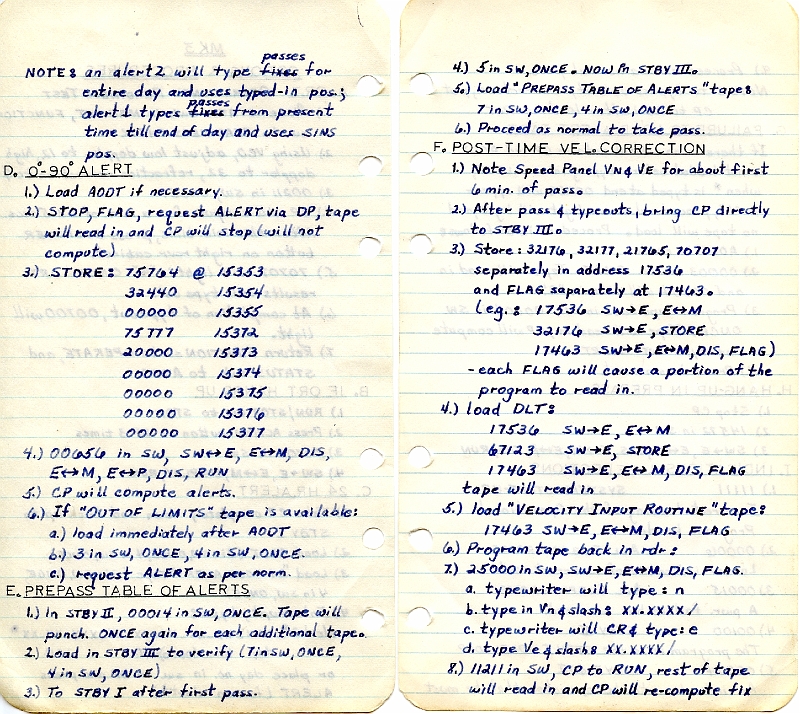 passes
NOTE: an alert2 will type fixes for
entire day and uses typed-in pos.;
passes
alert1 types fixes from present
time till end of day and uses SINS
pos.
D. 0°-90° ALERT
1.) Load AODT if necessary.
2.) STOP, FLAG, request ALERT via DP, tape
will read in and CP will stop (will not
compute)
3.) STORE: 75764 @ 15353
32440 15354
00000 15355
75777 15372
20000 15373
00000 15374
00000 15375
00000 15376
00000 15377
4.) 00656 in SW, SW↔E, E↔M, DIS,
E↔M, E↔P, DIS, RUN
5.) CP will compute alerts.
6.) If "OUT OF LIMITS" tape is available:
a.) load immediately after AODT
b.) 3 in SW, ONCE, 4 in SW, ONCE.
c.) request ALERT as per norm.
E. PREPASS TABLE OF ALERTS
1.) In STBY II, 00014 in SW, ONCE. Tape will
punch. ONCE again for each additional tape.
2.) Load in STBY III to verify (7 in SW, ONCE,
4 in SW, ONCE)
3.) To STBY I after first pass.
4.) 5 in SW, ONCE. NOW in STBY III.
5.) Load "PREPASS TABLE OF ALERTS" tape:
7 in SW, ONCE, 4 in SW, ONCE
6.) Proceed as normal to take pass.
F. POST-TIME VEL. CORRECTION
1.) Note Speed Panel VN & VE for about first
6 min. of pass.
2.) After pass & typeouts, bring CP directly
to STBY III.
3.) Store: 32176, 32177, 21765, 70707
separately in address 17536
and FLAG saparately at 17463.
(eg.: 17536 SW→E, E↔M
32176 SW→E, STORE
17463 SW→E, E↔M, DIS, FLAG)
- each FLAG will cause a portion of the
program to read in.
4.) load DLT:
17536 SW→E, E↔M
67123 SW→E, STORE
17463 SW→E, E↔M, DIS, FLAG
tape will read in
5.) load "VELOCITY INPUT ROUTINE" tape:
17463 SW→E, E↔M, DIS, FLAG
6.) Program tape back in rdr:
7.) 25000 in SW, SW→E, E↔M, DIS, FLAG.
a. typewriter will type: n
b. type in Vn & slash: XX.XXXX/
c. typewriter will CR & type: e
d. type Ve & slash: XX.XXXX/
8.) 11211 in SW, CP to RUN, rest of tape
will read in and CP will re-compute fix